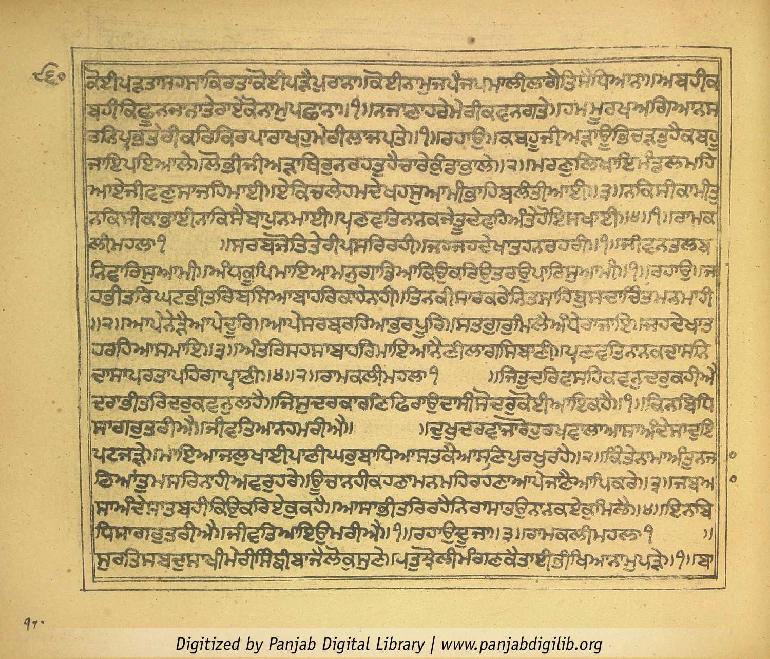 ੮੬੦
ਕੋਈਪੜਤਾਸਹਸਾਕਿਰਤਾਕੋਈਪੜੈਪੁਰਾਨਾ॥ਕੋਈਨਾਮੁਜਪੈਜਪਮਾਲੀਲਾਗੈਤਿਸੈਧਿਆਨਾ॥ਅਬਹੀਕ
ਬਹੀਕਿਛੂਨਜਾਨਾਤੇਰਾਏਕੋਨਾਮੁਪਛਾਨਾ॥੧॥ਨਜਾਣਾਹਰੇਮੇਰੀਕਵਨਗਤੇ॥ਹਮਮੂਰਖਅਗਿਆਨਸ
ਰਨਿਪ੍ਰਭਤੇਰੀਕਰਿਕਿਰਪਾਰਾਖਹੁਮੇਰੀਲਾਜਪਤੇ॥੧॥ਰਹਾਉ॥ਕਬਹੂਜੀਅੜਾਊਭਿਚੜਤੁਹੈਕਬਹੂ
ਜਾਇਪਇਆਲੇ॥ਲੋਭੀਜੀਅੜਾਥਿਰੁਨਰਹਤੁਹੈਚਾਰੇਕੁੰਡਾਭਾਲੇ॥੨॥ਮਰਣੁਲਿਖਾਇਮੰਡਲਮਹਿ
ਆਏਜੀਵਣੁਸਾਜਹਿਮਾਈ॥ਏਕਿਚਲੇਹਮਦੇਖਹਸੁਆਮੀਭਾਹਿਬਲੰਤੀਆਈ॥੩॥ਨਕਿਸੀਕਾਮੀਤੁ
ਨਕਿਸੀਕਾਭਾਈਨਾਕਿਸੈਬਾਪੁਨਮਾਈ॥ਪ੍ਰਣਵਤਿਨਾਨਕਜੇਤੂਦੇਵਹਿਅੰਤੇਹੋਇਸਖਾਈ॥੪॥੧॥ਰਾਮਕ
ਲੀਮਹਲਾ੧ ॥ਸਰਬਜੋਤਿਤੇਰੀਪਸਰਿਰਹੀ॥ਜਹਜਹਦੇਖਾਤਹਨਰਹਰੀ॥੧॥ਜੀਵਨਤਲਬ
ਨਿਵਾਰਿਸੁਆਮੀ॥ਅੰਧਕੂਪਿਮਾਇਆਮਨੁਗਾਡਿਆਕਿਉਕਰਿਉਤਰਉਪਾਰਿਸੁਆਮੀ॥੧॥ਰਹਾਉ॥ਜ
ਹਭੀਤਰਿਘਟਭੀਤਰਿਬਸਿਆਬਾਹਰਿਕਾਹੇਨਾਹੀ॥ਤਿਨਕੀਸਾਰਕਰੇਨਿਤਸਾਹਿਬੁਸਦਾਚਿੰਤਮਨਮਾਹੀ
॥੨॥ਆਪੇਨੇੜੈਆਪੇਦੂਰਿ॥ਆਪੇਸਰਬਰਹਿਆਭਰਪੂਰਿ॥ਸਤਗੁਰੁਮਿਲੈਅੰਧੇਰਾਜਾਇ॥ਜਹਦੇਖਾਤ
ਹਰਹਿਆਸਮਾਇ॥੩॥ਅੰਤਰਿਸਹਸਾਬਾਹਰਿਮਾਇਆਨੈਣੀਲਾਗਸਿਬਾਣੀ॥ਪ੍ਰਣਵਤਿਨਾਨਕਦਾਸਨਿ
ਦਾਸਾਪਰਤਾਪਹਿਗਾਪ੍ਰਾਣੀ॥੪॥੨॥ਰਾਮਕਲੀਮਹਲਾ੧ ॥ਜਿਤੁਦਰਿਵਸਹਿਕਵਨੁਦਰੁਕਹੀਐ
ਦਰਾਭੀਤਰਿਦਰੁਕਵਨੁਲਹੈ॥ਜਿਸੁਦਰਕਾਰਣਿਫਿਰਾਉਦਾਸੀਸੋਦਰੁਕੋਈਆਇਕਹੈ॥੧॥ਕਿਨਬਿਧਿ
ਸਾਗਰੁਤਰੀਐ॥ਜੀਵਤਿਆਨਹਮਰੀਐ॥ ॥ਦੁਖੁਦਰਵਾਜਾਰੋਹੁਰਖਵਾਲਾਆਸਾਅੰਦੇਸਾਦੁਇ
ਪਟਜੜੇ॥ਮਾਇਆਜਲੁਖਾਈਪਾਣੀਘਰੁਬਾਧਿਆਸਤਕੈਆਸਣਿਪੁਰਖੁਰਹੈ॥੨॥ਕਿੰਤੇਨਾਮਾਅੰਤੁਨਜਾ
ਣਿਆਤੁਮਸਰਿਨਾਹੀਅਵਰੁਹਰੇ॥ਊਚਾਨਹੀਕਹਣਾਮਨਮਹਿਰਹਣਾਆਪੇਜਾਣੈਆਪਿਕਰੇ॥੩॥ਜਬਆ
ਸਾਅੰਦੇਸਾਤਬਹੀਕਿਉਕਰਿਏਕੁਕਹੈ॥ਆਸਾਭੀਤਰਿਰਹੈਨਿਰਾਸਾਤਉਨਾਨਕਏਕੁਮਿਲੈ॥੪॥ਇਨਬਿ
ਧਿਸਾਗਰੁਤਰੀਐ॥ਜੀਵਤਿਆਇਉਮਰੀਐ॥੧॥ਰਹਾਉਦੂਜਾ॥੩॥ਰਾਮਕਲੀਮਹਲਾ੧ ॥
ਸੁਰਤਿਸਬਦੁਸਾਖੀਮੇਰੀਸਿੰਙੀਬਾਜੈਲੋਕੁਸੁਣੇ॥ਪਤੁਝੋਲੀਮੰਗਣਕੈਤਾਈਭੀਖਿਆਨਾਮੁਪੜੇ॥੧॥ਬਾ
Digitized by Panjab Digital Library | www.panjabdigilib.org